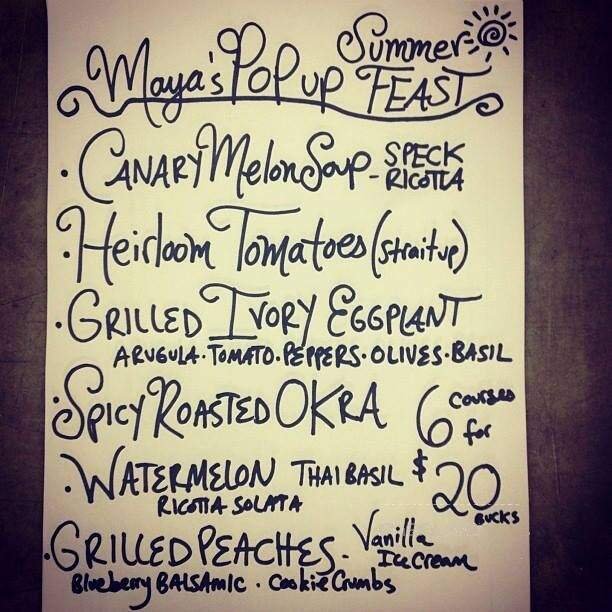 Maya's Pop up Summer FEAST
· CANARY Melon Soup - SPECK RICOTTA
· Heirloom Tomatoes (strait up)
· GRILLED IVORY EGGPLANT
ARUGULA · TOMATO · PEPPERS · OLIVES · BASIL
· SPICY ROASTED OKRA
6 courses for $20 BUCKS
· WATERMELON THAI BASIL
RICOTTA SOLATA
· GRILLED PEACHES - Vanilla Ice Cream
Blueberry BALSAMIC · Cookie Crumbs